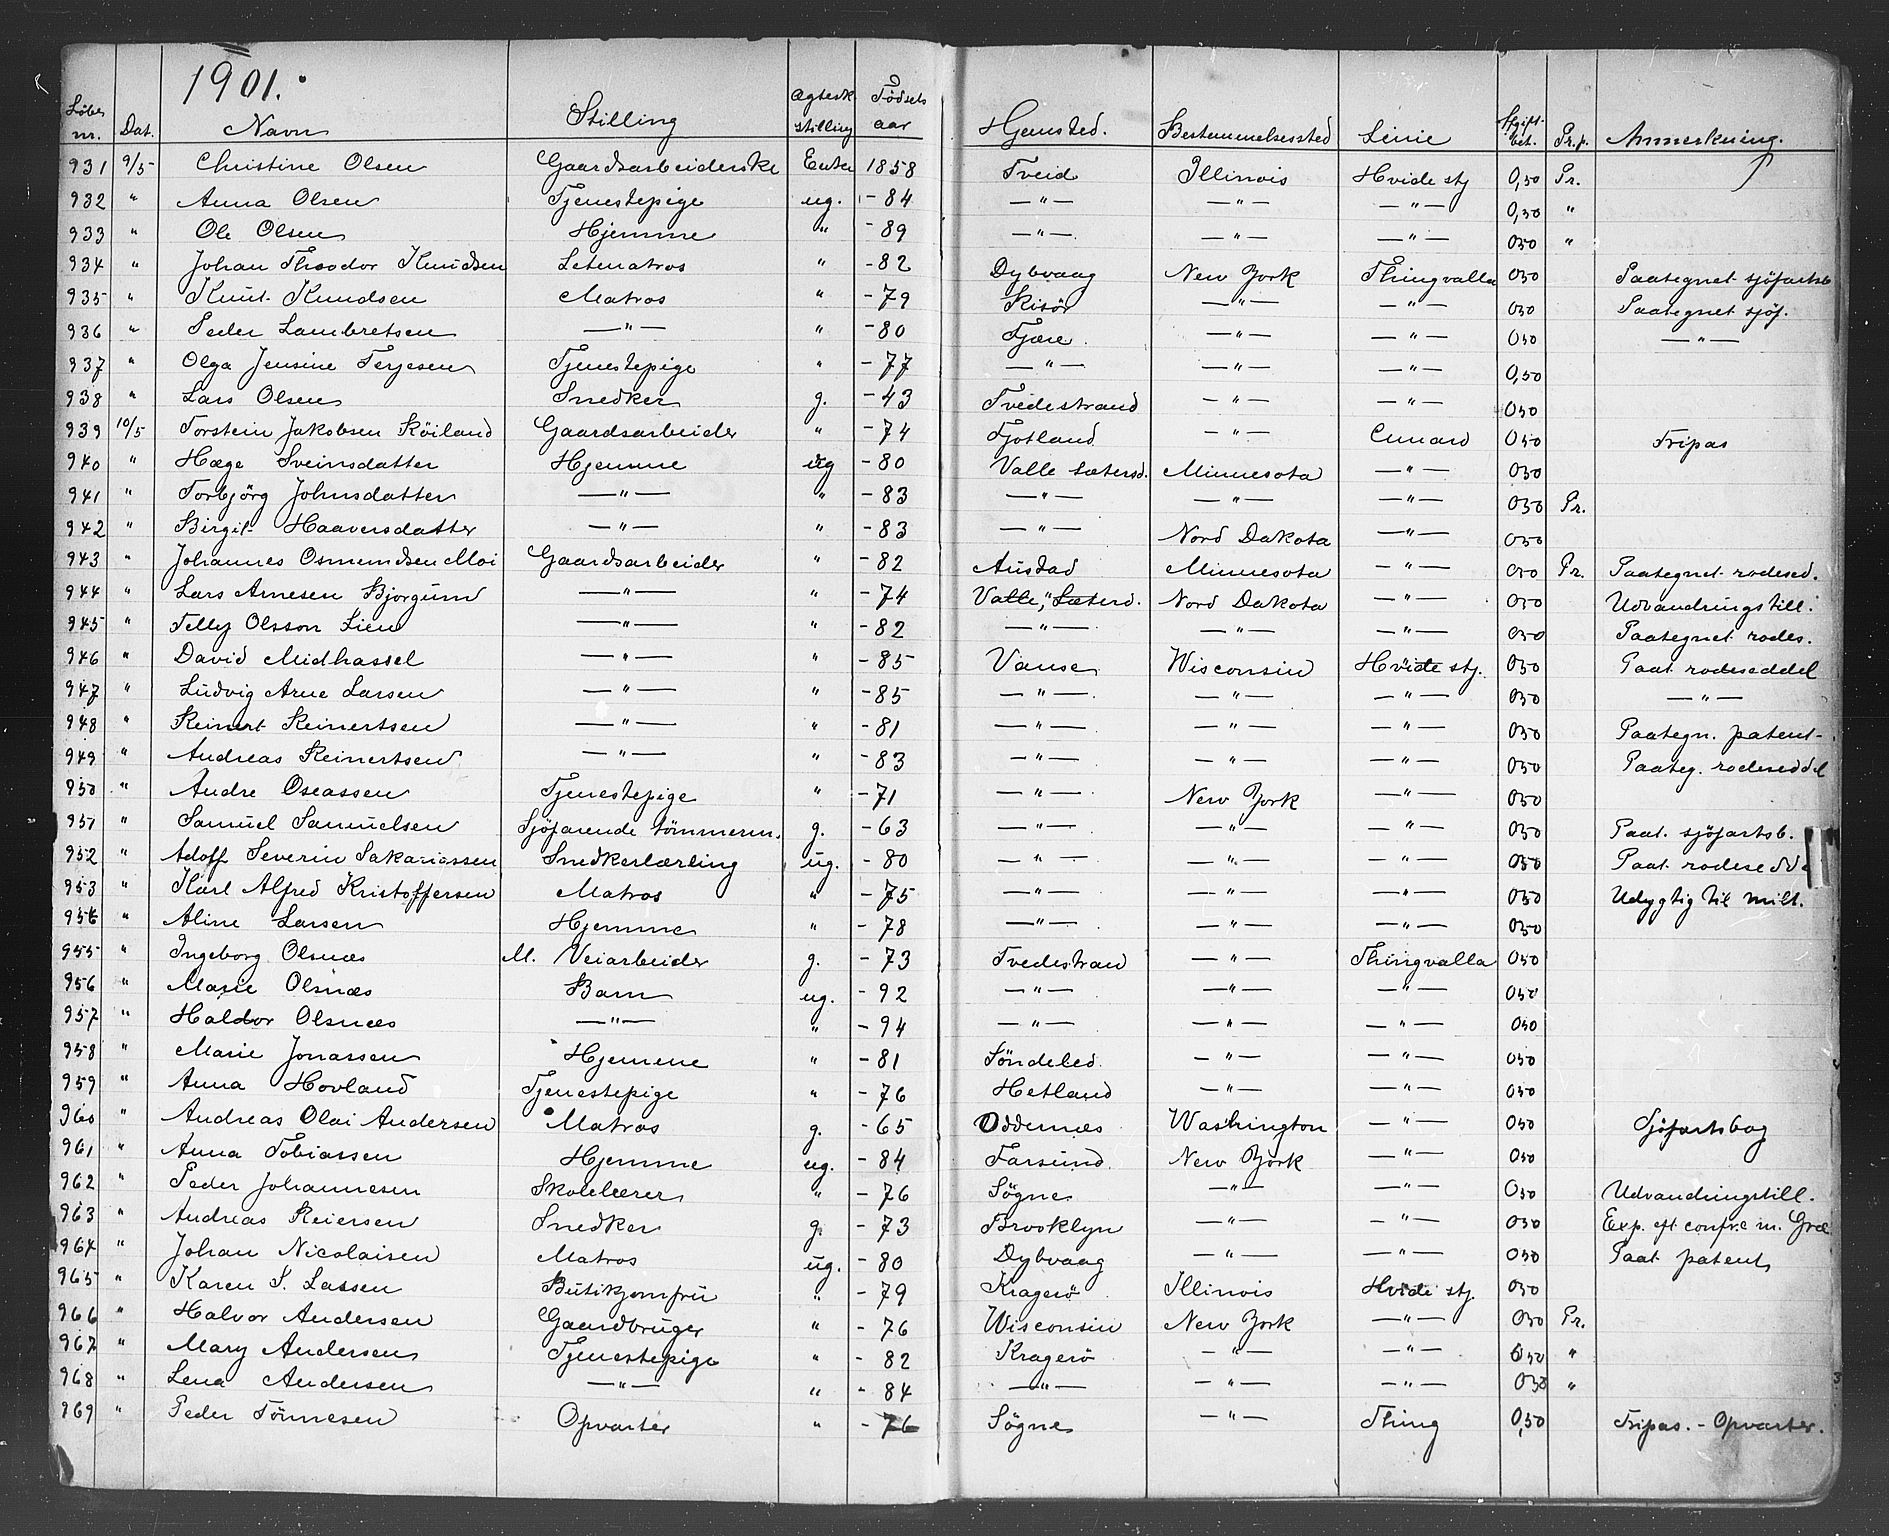 1901.
Løbe nr. Dat. Navn Stilling Ægtesk. stilling Fødsels aar Hjemsted. Bestemmelsessted Linie bet. Pr.p. Anmerkning.
931 9/5 Christine Olsen Gaardsarbeiderske Enke 1858 Tveid Illinois Hvide stj 0,50 Pr.
932 " Anna Olsen Tjenestepige ug. -84 —"— —"— —"— 0,50 "
933 " Ole Olsen Hjemme " -89 —"— —"— —"— 050 "
934 " Johan Theodor Knudsen Letmatros " -82 Dybvaag New York Thingvalla 050 Paategnet sjöfartsb
935 " Knut Knudsen Matros " -79 Risör —"— —"— 050 Paategnet sjöf.
936 " Peder Lambretsen —"— " -80 Fjære —"— —"— 050 —"—
937 " Olga Jensine Terjesen Tjenestepige " -77 —"— —"— —"— 0,50
938 " Lars Olsen Snedker g. -43 Tvedestrand —"— —"— 050
939 10/5 Torstein Jakobsen Röiland Gaardsarbeider " -74 Fjotland —"— Cunard 050 Fripas
940 " Hæge Sveinsdatter Hjemme ug -80 Valle Sætersd. Minnesota —"— 050
941 " Torbjørg Johnsdatter —"— " -83 —"— —"— —"— 050 Pr.
942 " Birgit Haaversdatter —"— " -83 —"— Nord Dakota —"— 050
943 " Johannes Osmundsen Moi Gaardsarbeider " -82 Austad Minnesota —"— 050 Pr. Paategnet rodesed.
944 " Lars Arnesen Bjorgum —"— " -74 Valle, Sætersd. Nord Dakota —"— 050 Udvandringstill.
945 " Felly Olsson Lien —"— " -82 —"— —"— —"— 050 Paategnet rodes.
946 " David Midhassel —"— " -85 Vanse Wisconsin Hvide stj. 050 Paat rodeseddel
947 " Ludvig Arne Larsen —"— " -85 —"— —"— —"— 050 —"—
948 " Reinert Reinertsen —"— " -81 —"— —"— —"— 050 Paategn. patent-
949 " Andreas Reinertsen —"— " -83 —"— —"— —"— 050 Paateg. rodeseddel
950 " Andre Oseassen Tjenestepige " -71 —"— New York —"— 050
951 " Samuel Samuelsen Sjöfarende tömmerm. g. -63 —"— —"— —"— 050 Paat. sjöfartsb.
952 " Adolf Severin Sakariassen Snedkerlærling ug. -80 —"— —"— —"— 050 Paat rodesedde
953 " Karl Alfred Kristoffersen Matros " -75 —"— —"— —"— 050 Udygtig til milt.
954 " Aline Larsen Hjemme " -78 —"— —"— —"— 050
955 " Ingeborg Olsnæs M. Veiarbeider g. -73 Tvedestran —"— Thingvalla 050
956 " Marie Olsnæs Barn ug. -92 —"— —"— —"— 050
957 " Haldor Olsnæs —"— " -94 —"— —"— —"— 050
958 " Marie Jonassen Hjemme " -81 Söndeled —"— —"— 050
959 " Anna Hovland Tjenestepige " -76 Hetland —"— —"— 050
960 " Andreas Olai Andersen Matros g. -65 Oddernes Washington —"— 050 Sjöfartsbog
961 " Anna Tobiassen Hjemme ug. -84 Farsund. New York —"— 050
962 " Peder Johannesen Skolelærer " -76 Søgne —"— —"— 050 Udvandringstill.
963 " Andreas Reiersen Snedker g. -73 Brooklyn —"— —"— 050 Exp. eft confr.e m.
964 " Johan Nicolaisen Matros ug. -80 Dybvaag —"— —"— 050 Paat patent
965 " Karen S. Lassen Butikjomfru " -79 Kragerø Illinois Hvide stj. 050
966 " Halvor Andersen Gaardbruger " -76 Wisconsin New York —"— 050 Pr.
967 " Mary Andersen Tjenestepige " -82 Kragerø —"— —"— 050 "
968 " Lena Andersen —"— " -84 —"— —"— —"— 050 "
969 " Peder Tönnesen Opvarter " -76 Søgne —"— Thing 0,50 Fripas. - Opvarter.